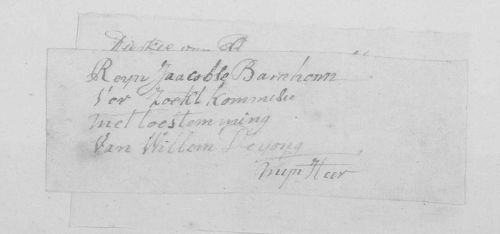 Reyn Jaacobse Barnhoorn
Ver Zoekt kommesie
met toestemming
Van Willem Deyong
Mijn Heer